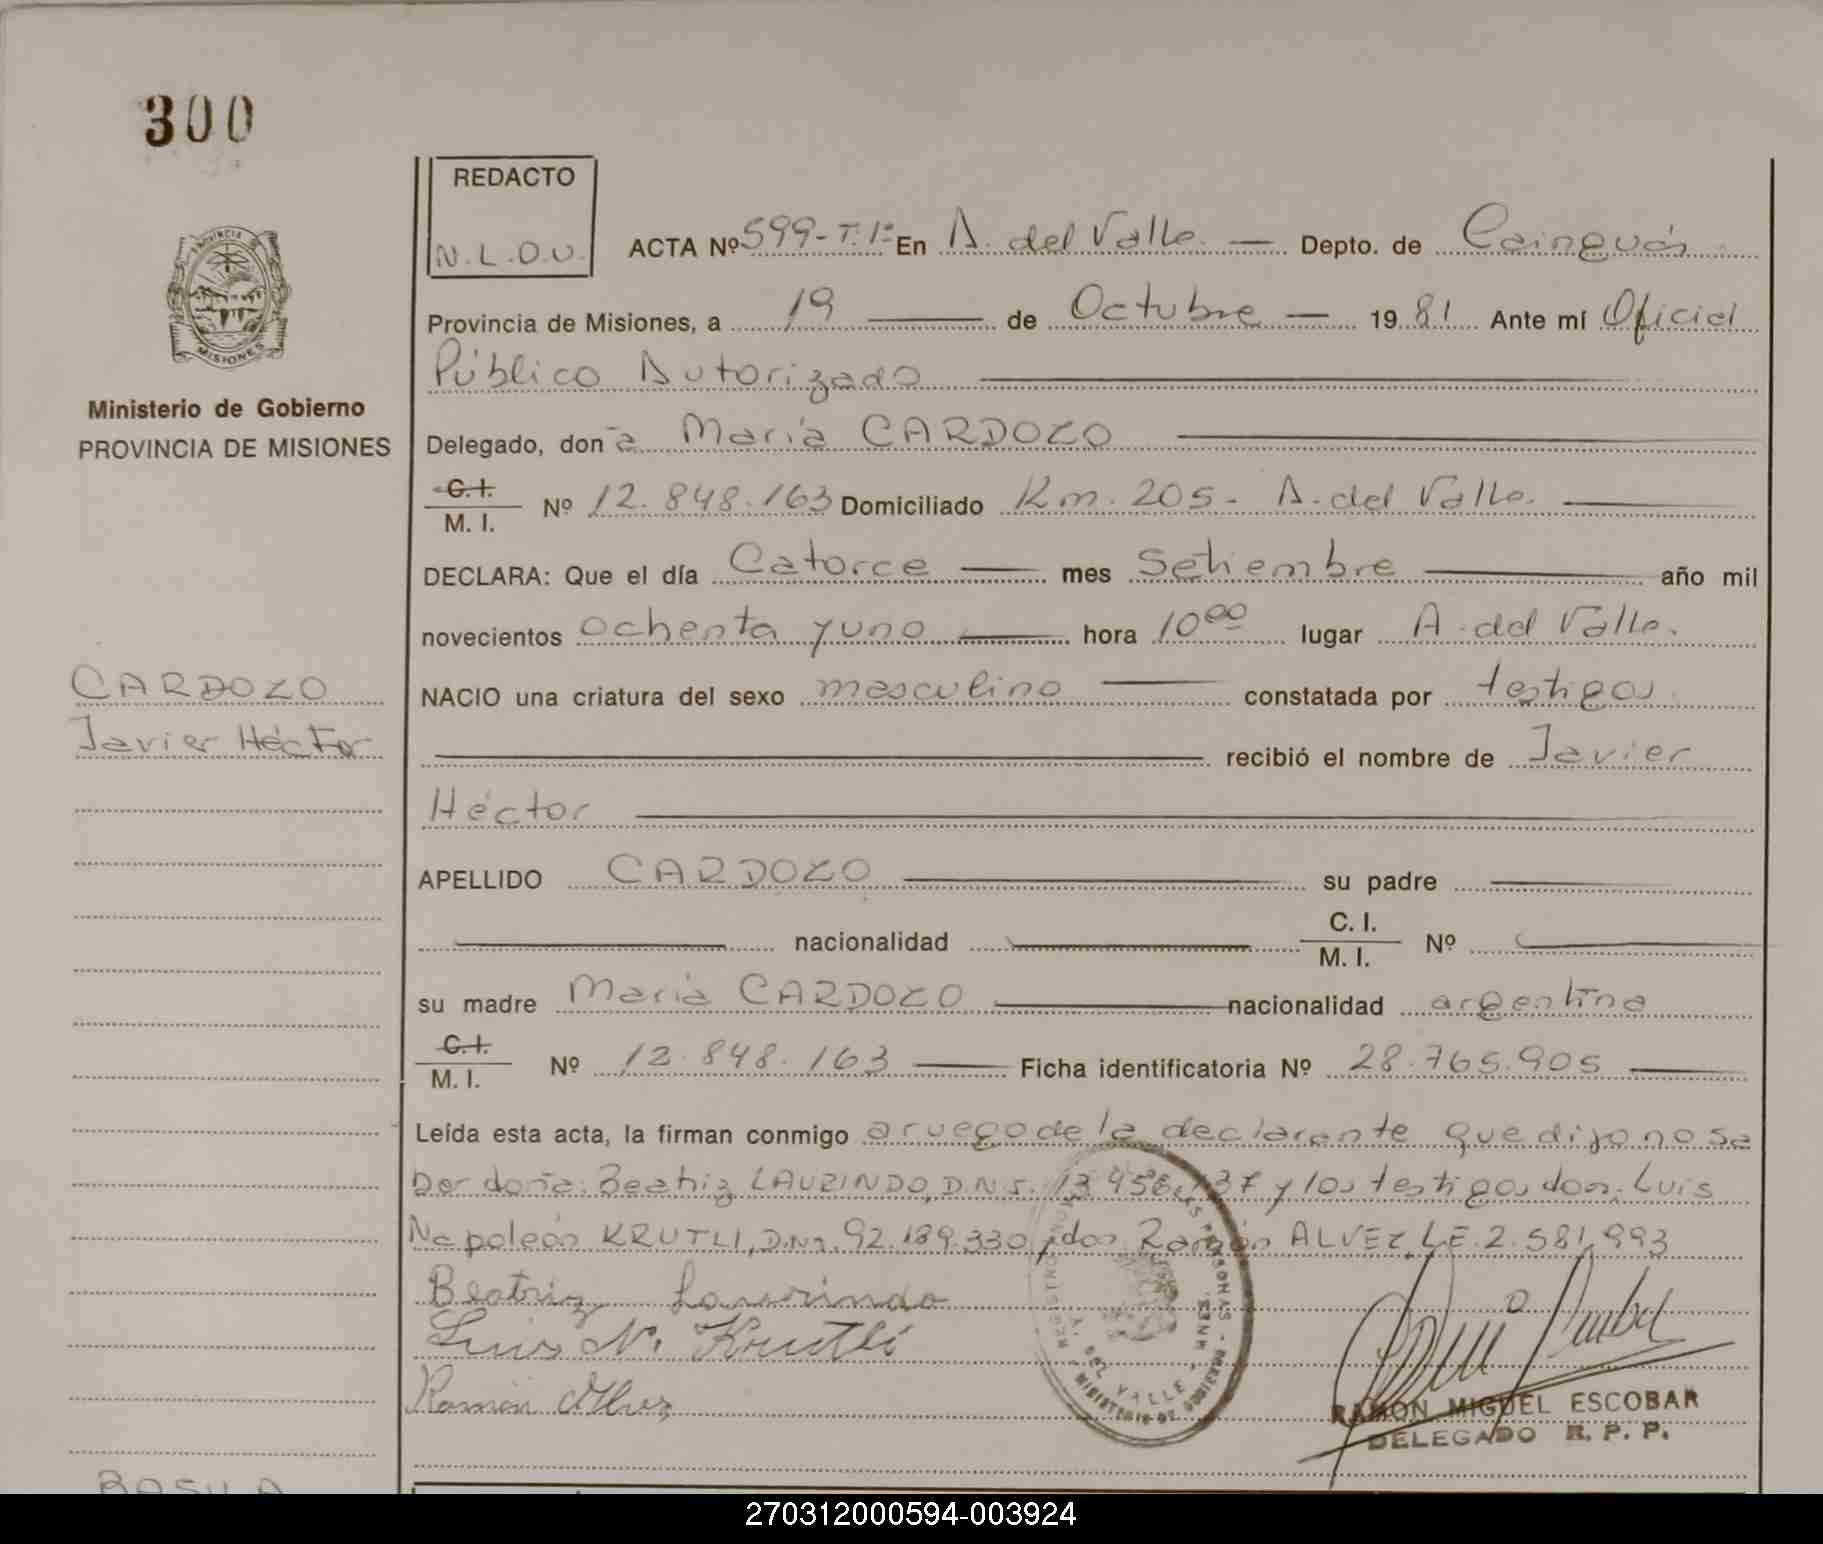 300
REDACTO
N.L.O.U.
ACTA Nº 599-T.1º En A. del Valle. Depto. de Cainguás
PROVINCIA
MISIONES
Ministerio de Gobierno
PROVINCIA DE MISIONES
Provincia de Misiones, a 19 de Octubre 1981 Ante mí Oficial
Público Autorizado
Delegado, doña María CARDOZO
C. I.
M. I. Nº 12.848.163 Domiciliado Km. 205- A. del Valle.
DECLARA: Que el día Catorce mes Setiembre año mil
novecientos ochenta y uno hora 10⁰⁰ lugar A. del Valle.
NACIO una criatura del sexo masculino constatada por testigos
recibió el nombre de Javier
Héctor
CARDOZO
Javier Héctor
APELLIDO CARDOZO su padre
nacionalidad C. I. M. I. Nº
su madre María CARDOZO nacionalidad argentina
C. I.
M. I. Nº 12.848.163 Ficha identificatoria Nº 28.765.905
Leída esta acta, la firman conmigo a ruego de la declarante que dijo no sa
ber doña: Beatriz LAURINDO, D.N.I. 13.456.137 y los testigos don: Luis
Napoleón KRUTLI, D.N.I. 92.189.330 y don Ramón ALVEZ, L.E. 2.581.993
Beatriz Laurindo
Luis N. Krutli
Ramón Alvez
A. DEL VALLE
RAMON MIGUEL ESCOBAR
DELEGADO R. P. P.
270312000594-003924